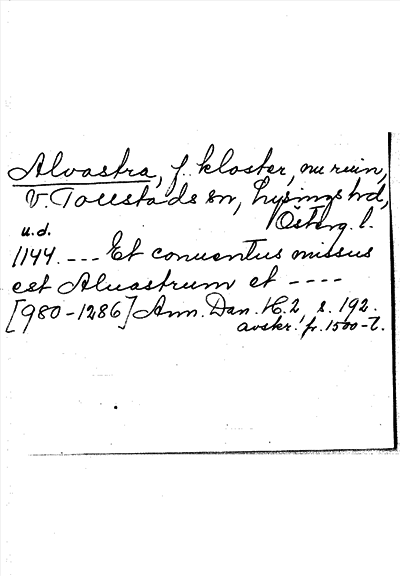 Alvastra, f. kloster, nu ruin,
V. Tollstads sn, Lysings hd,
Österg. l.
u.d.
1144. --- Et conventus missus
est Aluastrum et ----
[980-1286] Ann. Dan. H. 2, s. 192.
avskr. fr. 1500-t.